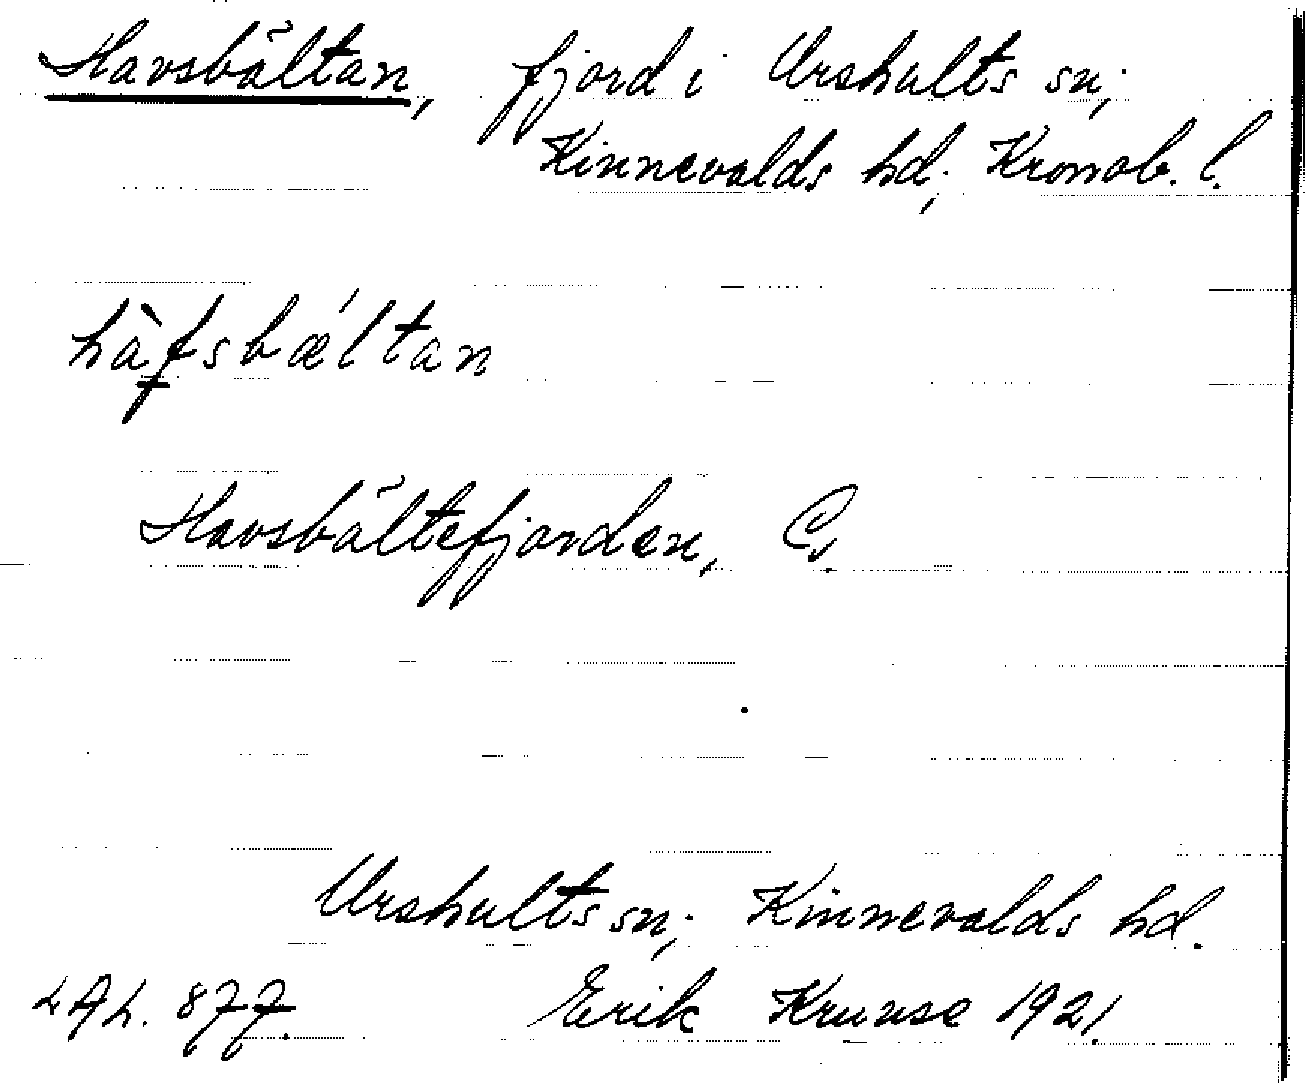 Havsbältan, fjord i Urshults sn;
Kinnevalds hd; Kronob. l.
hàfsbæ´ltan
Havsbältefjorden, C.
Urshults sn; Kinnevalds hd.
LAL. 877. Erik Kruuse 1921.